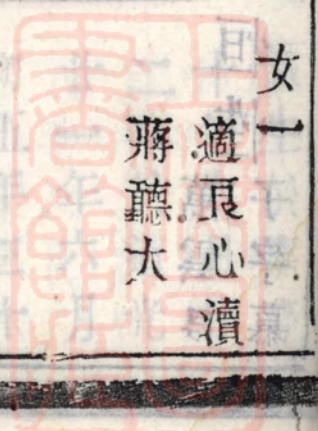 女一
適良心瀆
蔣聽大